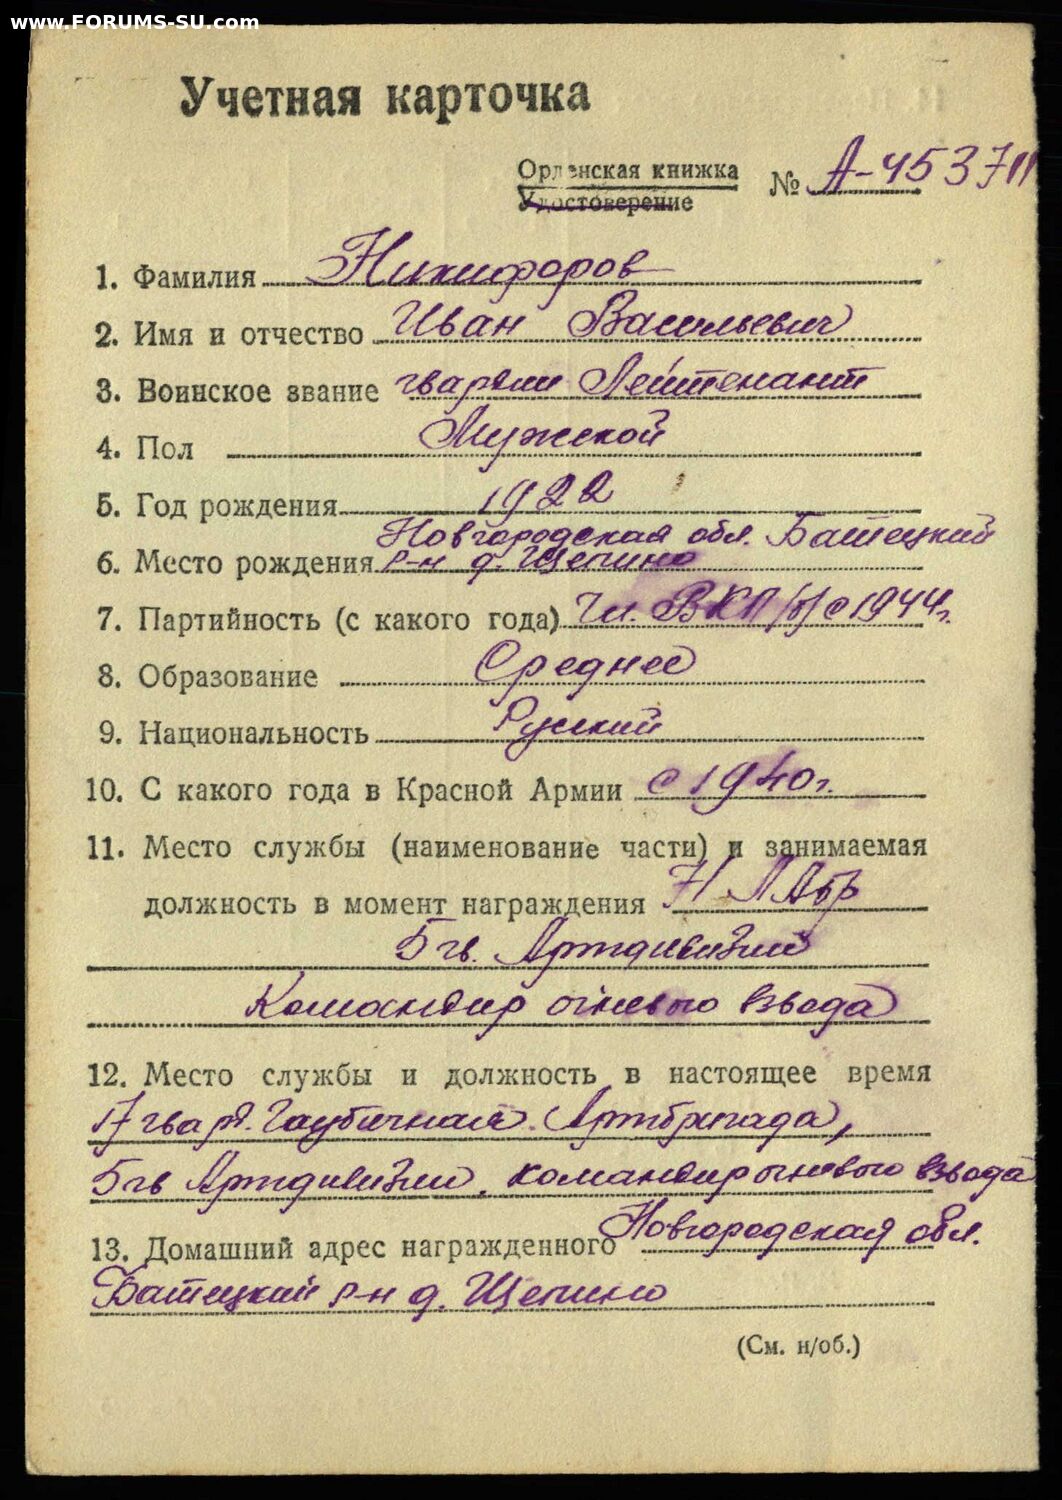 www.FORUMS-SU.com
Учетная карточка
Орденская книжка № А-453711
Удостоверение
1. Фамилия Никифоров
2. Имя и отчество Иван Васильевич
3. Воинское звание гвардии Лейтенант
4. Пол Мужской
5. Год рождения 1922
Новгородская обл. Батецкий
6. Место рождения р-н д. Щепино
7. Партийность (с какого года) Чл. ВКП/б/ с 1944г.
8. Образование Среднее
9. Национальность Русский
10. С какого года в Красной Армии с 1940г.
11. Место службы (наименование части) и занимаемая
должность в момент награждения
5 гв. Артдивизии
Командир огневого взвода
12. Место службы и должность в настоящее время
17 гвард. Гаубичная Артбригада,
5 гв Артдивизии, командир огневого взвода
13. Домашний адрес награжденного Новгородская обл.
Батецкий р-н д. Щепино
(См. н/об.)